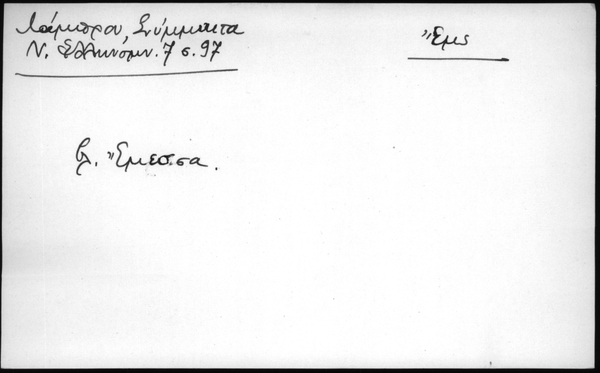 Λάμπρου, Σύμμικτα
Ν. Ελληνομν. 7 σ. 97
Ἔμς
βλ. Ἔμεσσα.